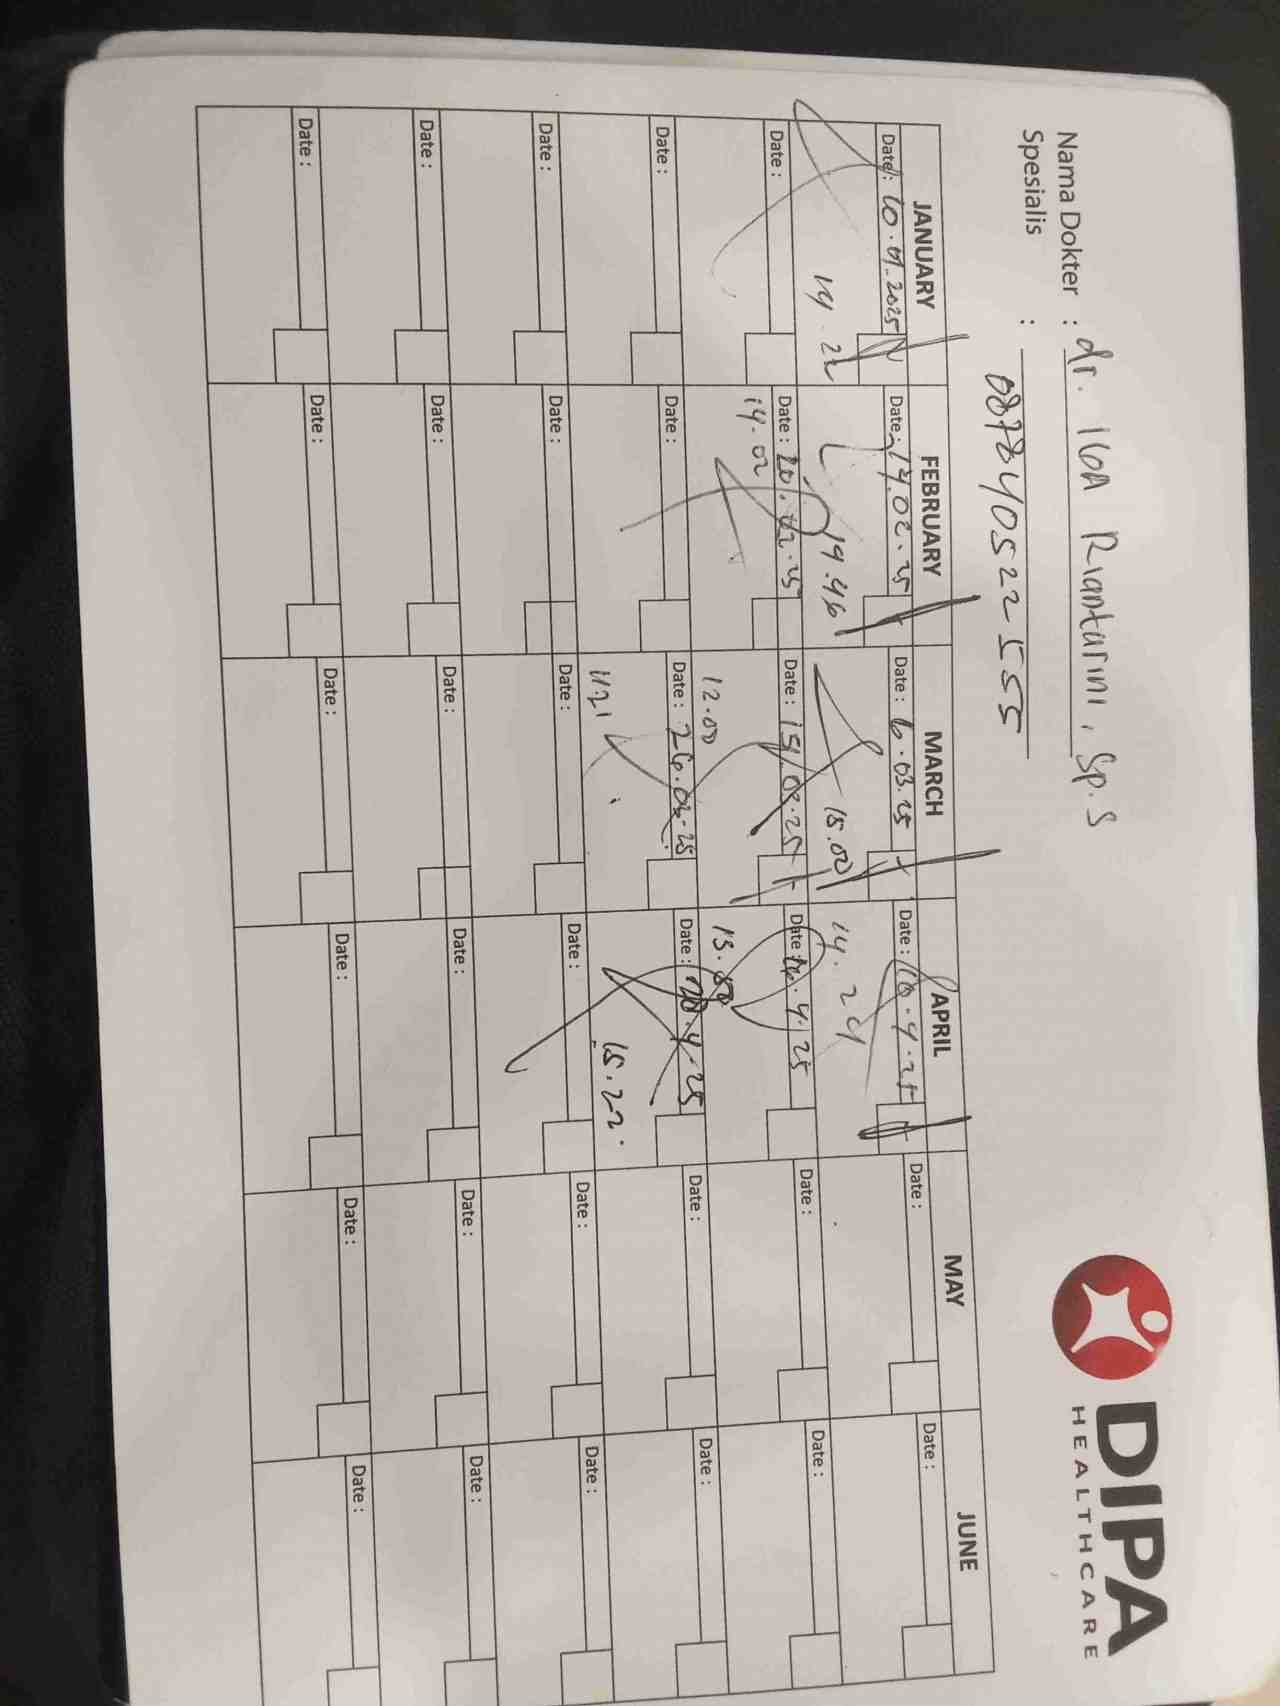 DIPA
HEALTHCARE
Nama Dokter : dr. IGA Riantarini, Sp.S
Spesialis :
087840522555
JANUARY FEBRUARY MARCH APRIL MAY JUNE
Date : 10.01.2025 Date : 17.02.25 Date : 6.03.25 Date : 10.4.25 Date : Date :
19.22 19.46 15.00 14.29
Date : Date : 20.02.25 Date : 15/03.25 Date : 16.4.25 Date : Date :
14.02 12.00 13.50
Date : Date : Date : 26.03.25 Date : 20.4.25 Date : Date :
11.21 15.22.
Date : Date : Date : Date : Date : Date :
Date : Date : Date : Date : Date : Date :
Date : Date : Date : Date : Date : Date :